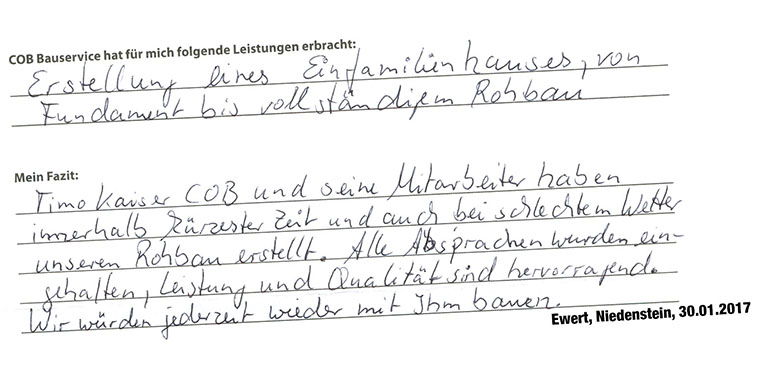 COB Bauservice hat für mich folgende Leistungen erbracht:
Erstellung eines Einfamilienhauses, von
Fundament bis vollständigem Rohbau
Mein Fazit:
Timo Kaiser COB und seine Mitarbeiter haben
innerhalb kürzester Zeit und auch bei schlechtem Wetter
unseren Rohbau erstellt. Alle Absprachen wurden ein-
gehalten, Leistung und Qualität sind hervorragend.
Wir würden jederzeit wieder mit Ihm bauen.
Ewert, Niedenstein, 30.01.2017